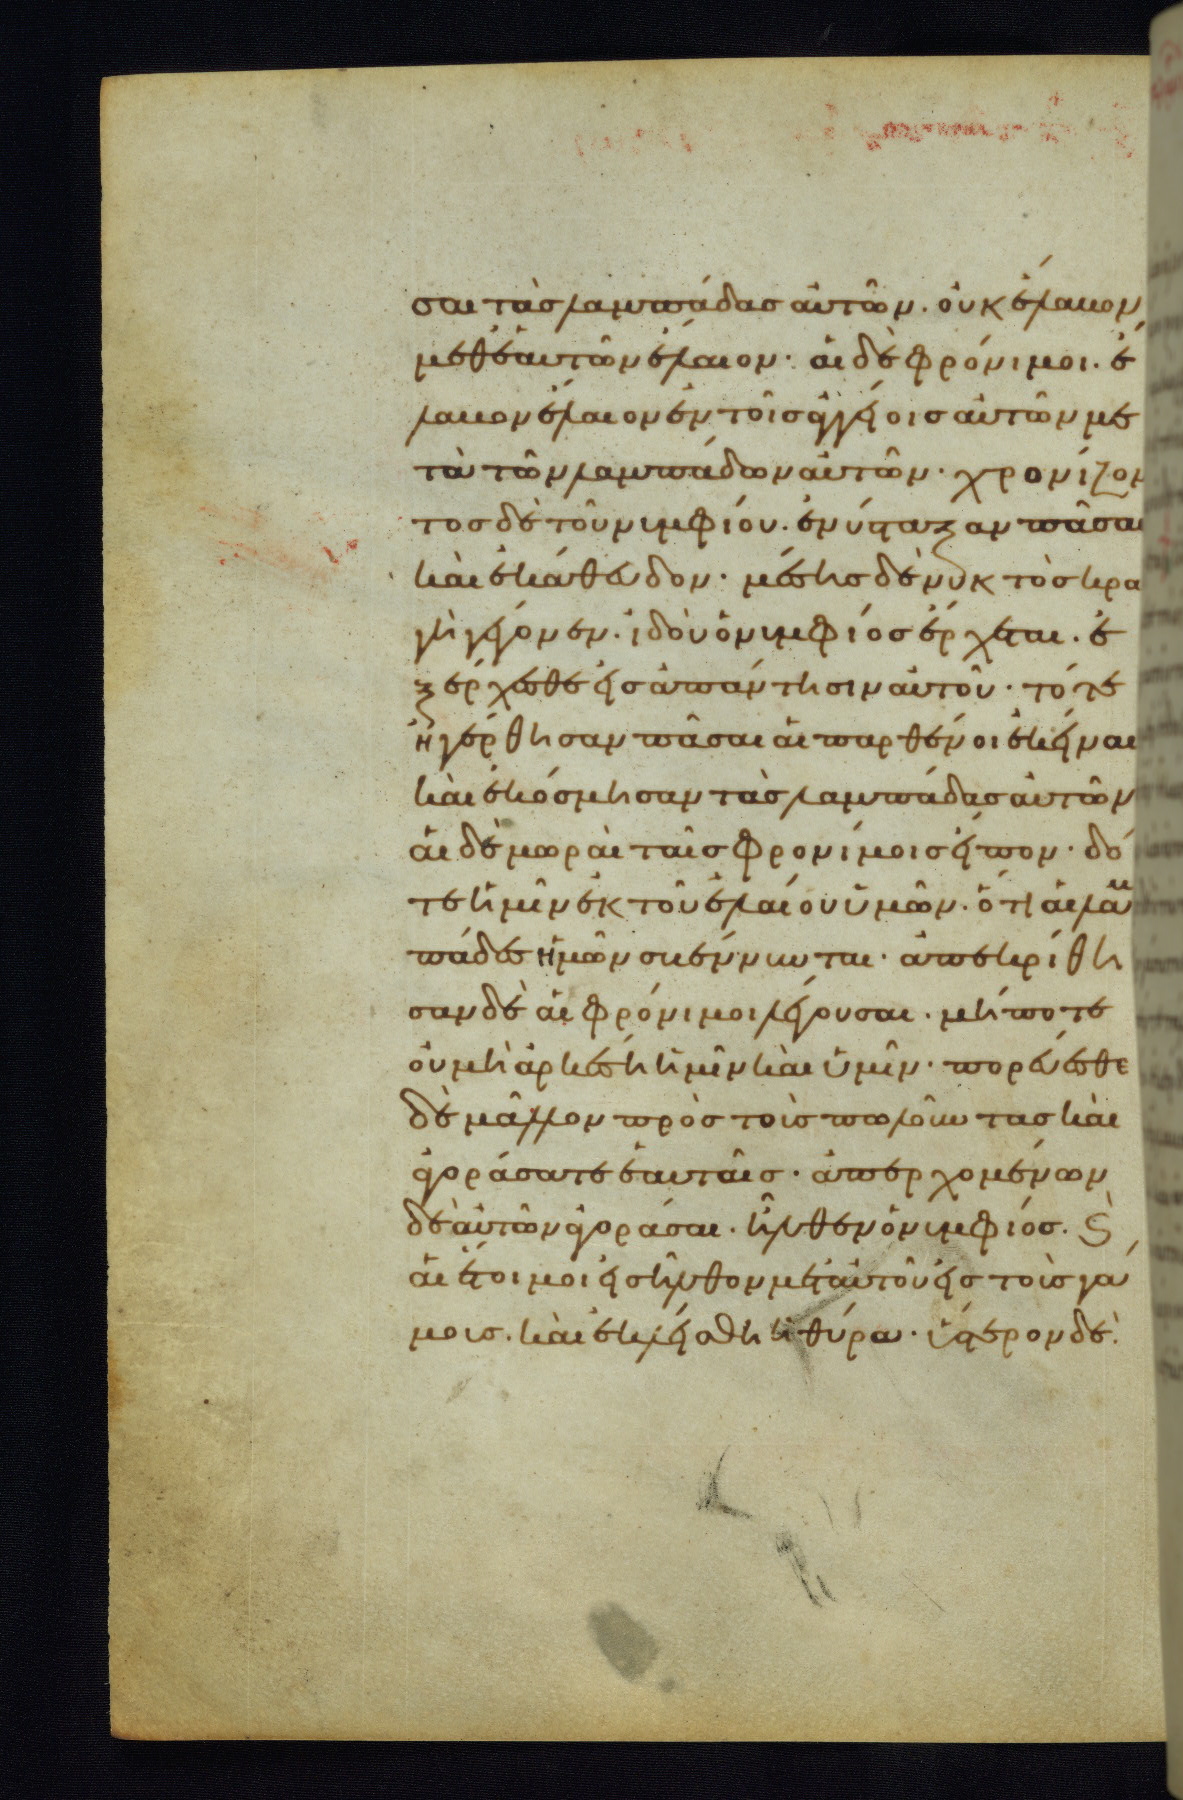 σαι τὰς λαμπάδας αὐτῶν. οὐκ ἔλαβον
μεθ ἑαυτῶν ἔλαιον· αἱ δὲ φρόνιμοι. ἔ
λαβον ἔλαιον ἐν τοῖς ἀγγείοις αὐτῶν με
τὰ τῶν λαμπάδων αὐτῶν· χρονίζον
τος δὲ τοῦ νυμφίου. ἐνύσταξαν πᾶσαι
καὶ ἐκάθευδον· μέσης δὲ νυκτὸς κραυ
γὴ γέγονεν. ἰδοὺ ὁ νυμφίος ἔρχεται. ἐ
ξέρχεσθε εἰς ἀπάντησιν αὐτοῦ· τότε
ἠγέρθησαν πᾶσαι αἱ παρθένοι ἐκεῖναι
καὶ ἐκόσμησαν τὰς λαμπάδας αὐτῶν
αἱ δὲ μωραὶ ταῖς φρονίμοις εἶπον· δό
τε ἡμῖν ἐκ τοῦ ἐλαίου ὑμῶν. ὅτι αἱ λαμ
πάδες ἡμῶν σβέννυνται· ἀπεκρίθη
σαν δὲ αἱ φρόνιμοι λέγουσαι. μήποτε
οὐ μὴ ἀρκέσῃ ἡμῖν καὶ ὑμῖν· πορεύεσθε
δὲ μᾶλλον πρὸς τοὺς πωλοῦντας καὶ
ἀγοράσατε ἑαυταῖς· ἀπερχομένων
δὲ αὐτῶν ἀγοράσαι. ἦλθεν ὁ νυμφίος. ϗ
αἱ ἕτοιμοι εἰσῆλθον μετ αὐτοῦ εἰς τοὺς γά
μους. καὶ ἐκλείσθη ἡ θύρα· ὕστερον δὲ.